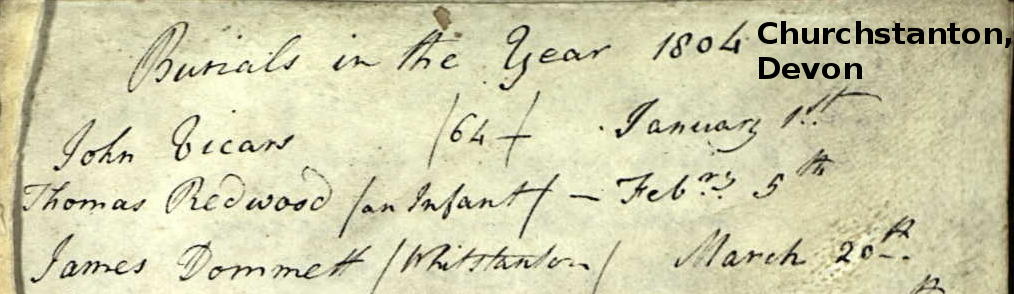 Burials in the Year 1804
Churchstanton,
Devon
John Vicars /64/ January 1st
Thomas Redwood /an Infant/ — Febry 5th
James Dommett /Whitstanton/ March 20th